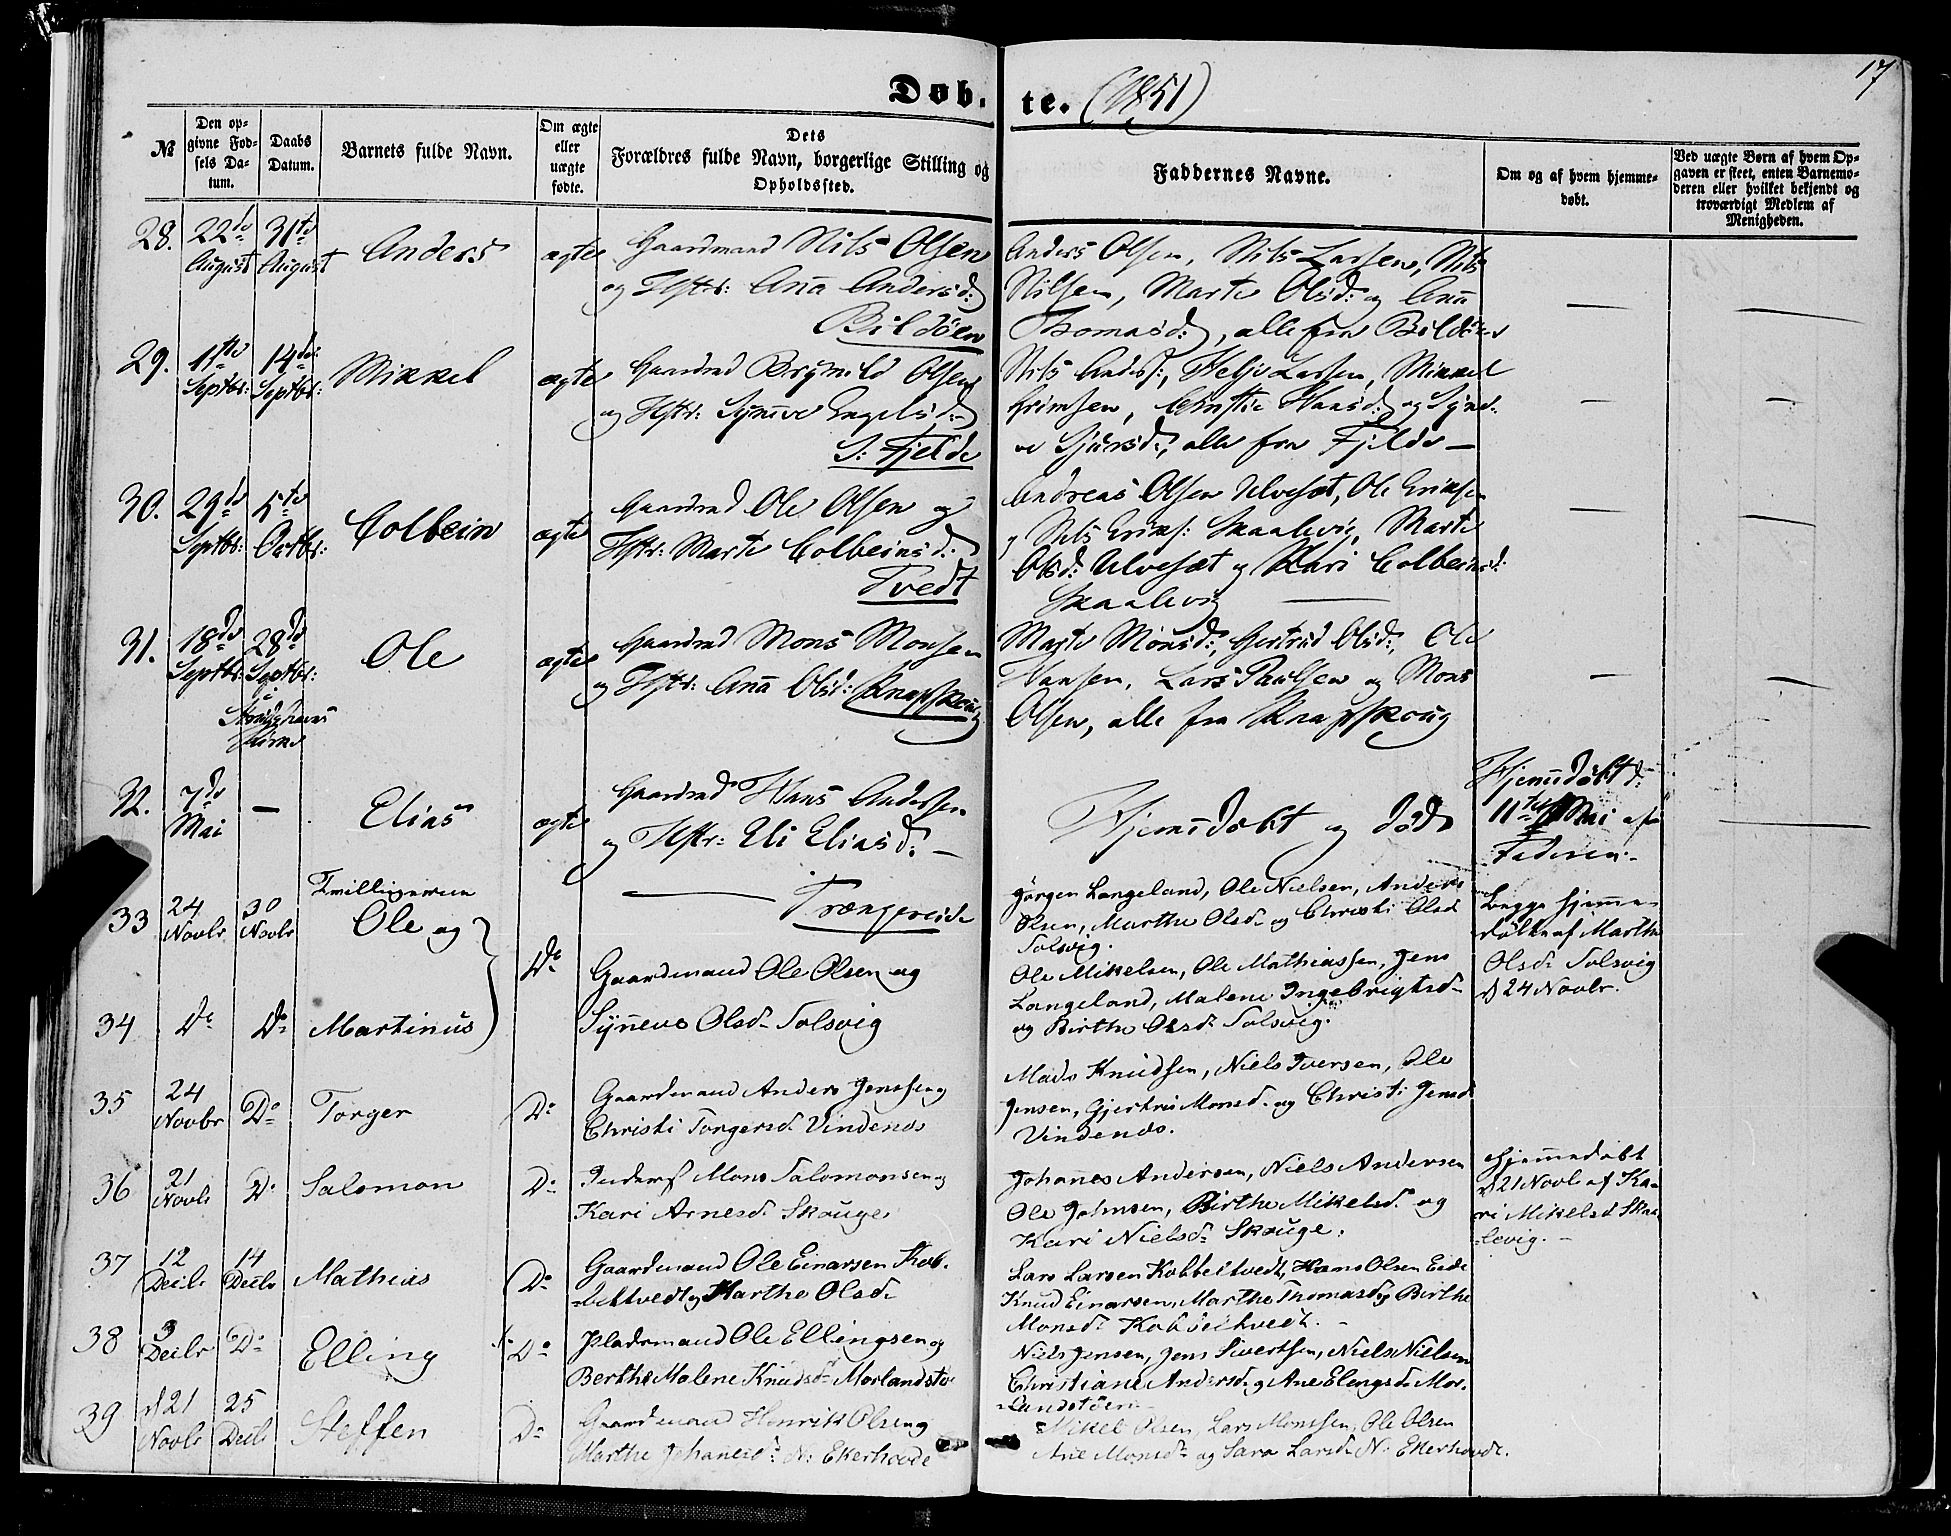 17
Døb. te. (1851)
№
Den op-
givne Fød-
sels Da-
tum.
Daabs
Datum.
Barnets fulde Navn.
Om ægte
eller
uægte
fødte.
Dets
Forældres fulde Navn, borgerlige Stilling og
Opholdssted.
Faddernes Navne.
Om og af hvem hjemme-
døbt.
Ved uægte Børn af hvem Op-
gaven er skeet, enten Barnemo-
deren eller hvilket bekjendt og
troværdigt Medlem af
Menigheden.
28. 22de 31te Anders ægte Gaardmand Nils Olsen
August August og Hstr: Ana Andersd:
Bildöen
Anders Olsen, Nils Larsen, Nils
Nilsen, Marte Olsd: og Ana
Thomasd:, alle fra Bildöen
29. 11te 14de Mikkel ægte Brynild Olsen
Septbr: Septbr: og Hstr: Synnve Engelsd:
S: Fjelde
Nils Anders:, Helje Larsen, Mikkel
Grimsen, Hansd: og Syne-
ve Sjursd:, alle fra Fjelde
30. 29de 5te Colbein ægte Ole Olsen og
Septbr: Octbr: Hstr: Marte Colbeinsd:
Tvedt
Andreas Olsen Ulvesæt, Ole Eriksen
og Nils Eriks: Skaalevig, Marte
Olsd: Ulvesæt og Kari Colbeinsd:
Skaalevig
31. 18de 28de Ole ægte Mons Monsen
Septbr: Septbr: og Hstr: Ana Olsd: Knapskoug
Marte Monsd:, Gertrud Olsd:, Ole
Hansen, Lars Paulsen og Mons
Olsen, alle fra Knapskoug
32. 7de — Elias ægte Hans Andersen
Mai og Hstr: Eli Eliasd: —
Trængereide
Hjemedöbt og död
Hjemedöbt d:
11te Mai af
Faderen.
33 24 30 Tvillingerne
Novbr Novbr Ole og Do
Gaardmand Ole Olsen og
Jörgen Langeland, Ole Nielsen, Anders
Olsen, Marthe Olsd. og Christi Olsd
Solsvig.
Begge hjemme-
döbte af Marthe
Olsd. Solsvig
d 24 Novbr.
34 Do Do Martinus Synneve Olsd. Solsvig
Ole Mikelsen, Ole Mathiassen, Jens
Langeland, Malene Ingebrigtsd.
og Birthe Olsd. Solsvig.
35 24 Do Torger Do Gaardmand Anders Jenssen og
Novbr Christi Torgersd. Vindenes
Mads Knudsen, Niels Iversen, Ole
Jensen, Gjertru Monsd. og Christi Jensd
Vindenes.
36 21 Do Salomon Do Inders Mons Salomonsen og
Novbr Kari Arnesd. Skouge
Johanes Andersen, Niels Andersen
Ole Johnsen, Birthe Mikelsd. og
Kari Nielsd. Skouge.
Hjemmedöbt
d 21 Novbr af Ka-
ri Mikelsd Skaa-
levig. —
37 12 14 Mathias Do Gaardmand Ole Einarsen Kob-
Decbr Decbr beltvedt og Marthe Olsd.
Lars Larsen Kobbeltvedt, Hans Olsen Eide
Knud Einarsen, Marthe Thomasd og Birthe
Monsd. Kobbeltvedt. —
38 3 Do Elling Do Pladsmand Ole Ellingsen og
Decbr Berthe Malene Knudsd. Morlandstø
Niels Jensen, Jens Sivertsen, Niels Nielsen
Christiane Andersd. og Ane Elengsd. Mor-
landstöen
39 d 21 25 Steffen Do Gaardmand Henrik Olsen og
Novbr Decbr Marthe Johanesd. N: Ekerhovde
Mikel Olsen, Lars Monssen, Ole Olsen
Ane Monsd. og Sara Larsd. N: Ekerhovde.